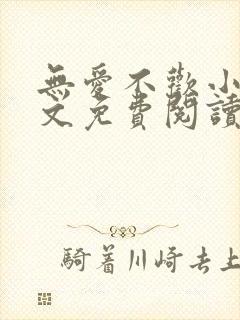 無愛不歡小
文免費閱讀
騎着川崎去上